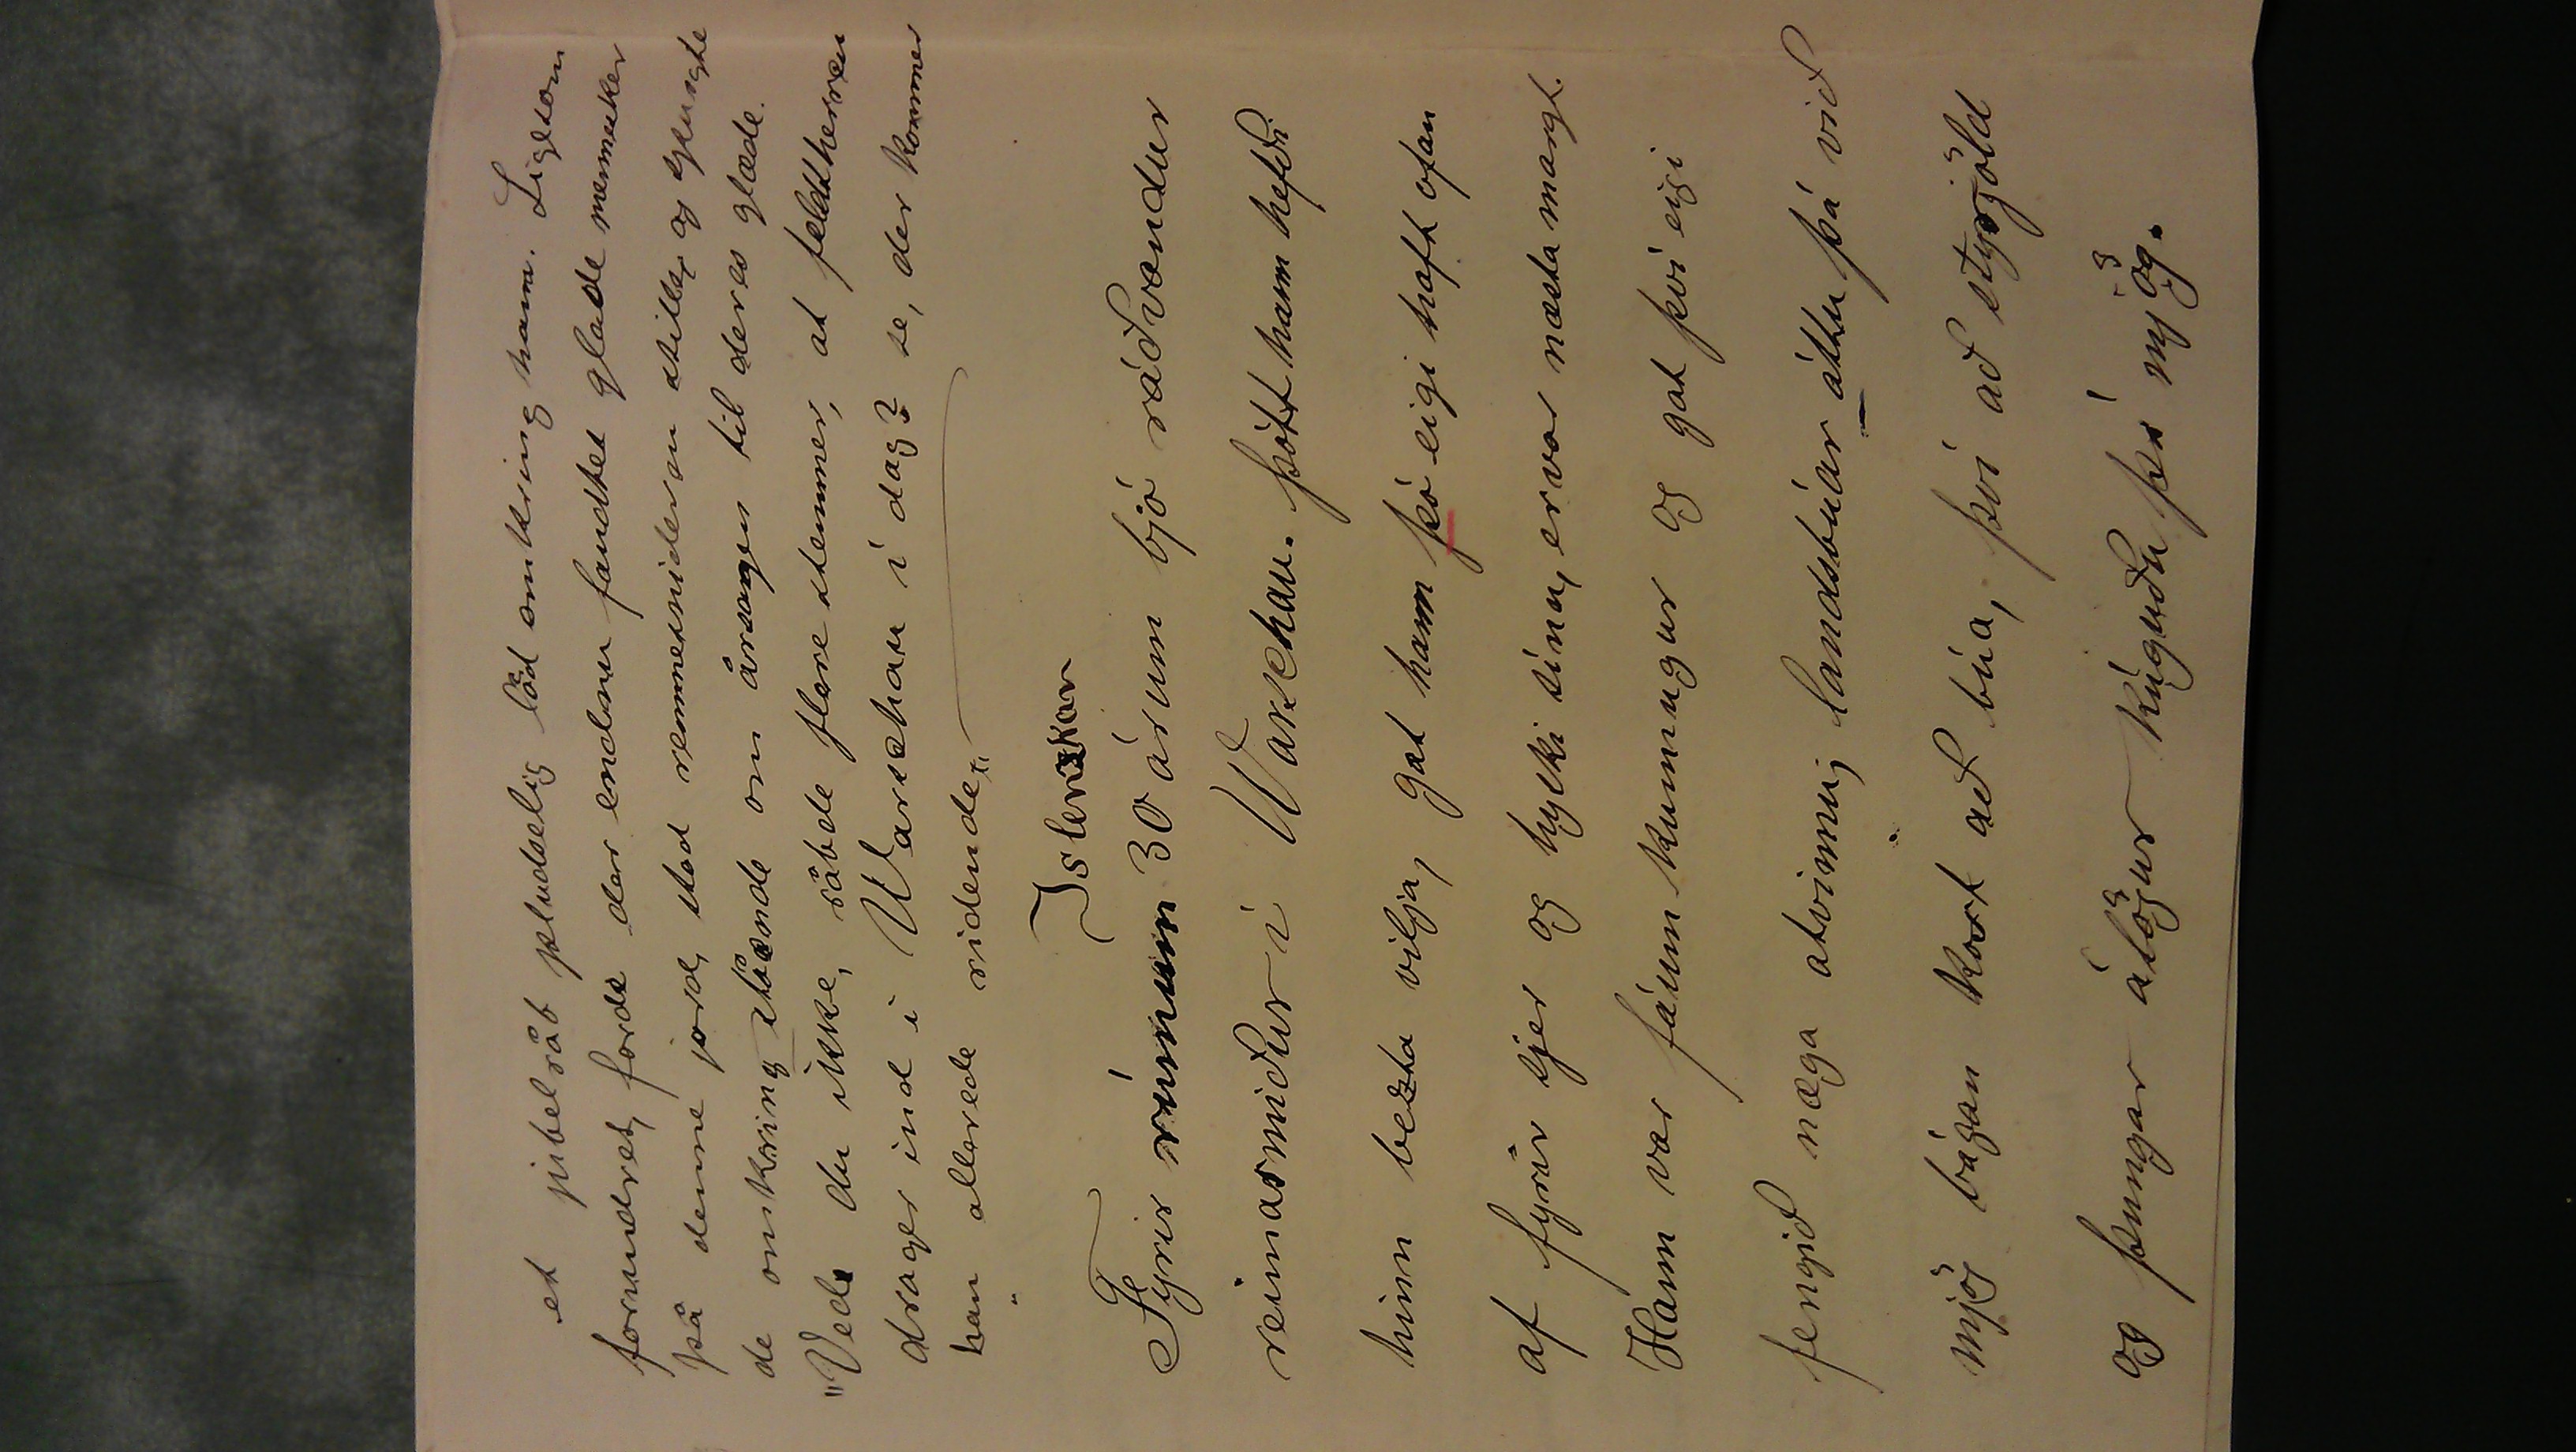 et jubelråb pludselig lød omkring ham. Ligesom
forundret, fordi der endnu fandtes glade mennesker
på denne jord, stod remmesnideren stille, og spurgte
de omkring stående om årsagen til deres glæde.
"Veds du ikke, råbde flere stemmer, at feldtherren
drager ind i Warschau i dag? se, der kommer
han allerede ridende."
Islenzkan
Fyrir rúmum 30 árum bjó ráðvandur
reimasmiður í Warschau. Þótt hann hefði
hinn bezta vilja, gat hann þó eigi haft ofan
af fyrir sjer og hyski sínu, er var næsta margt.
Hann var fáum kunnugur og gat því eigi
fengið næga atvinnu; landsbúar áttu þá við
mjög bágan kost að búa, því að styrjöld
og þungar álögur kúguðu þá mjög.